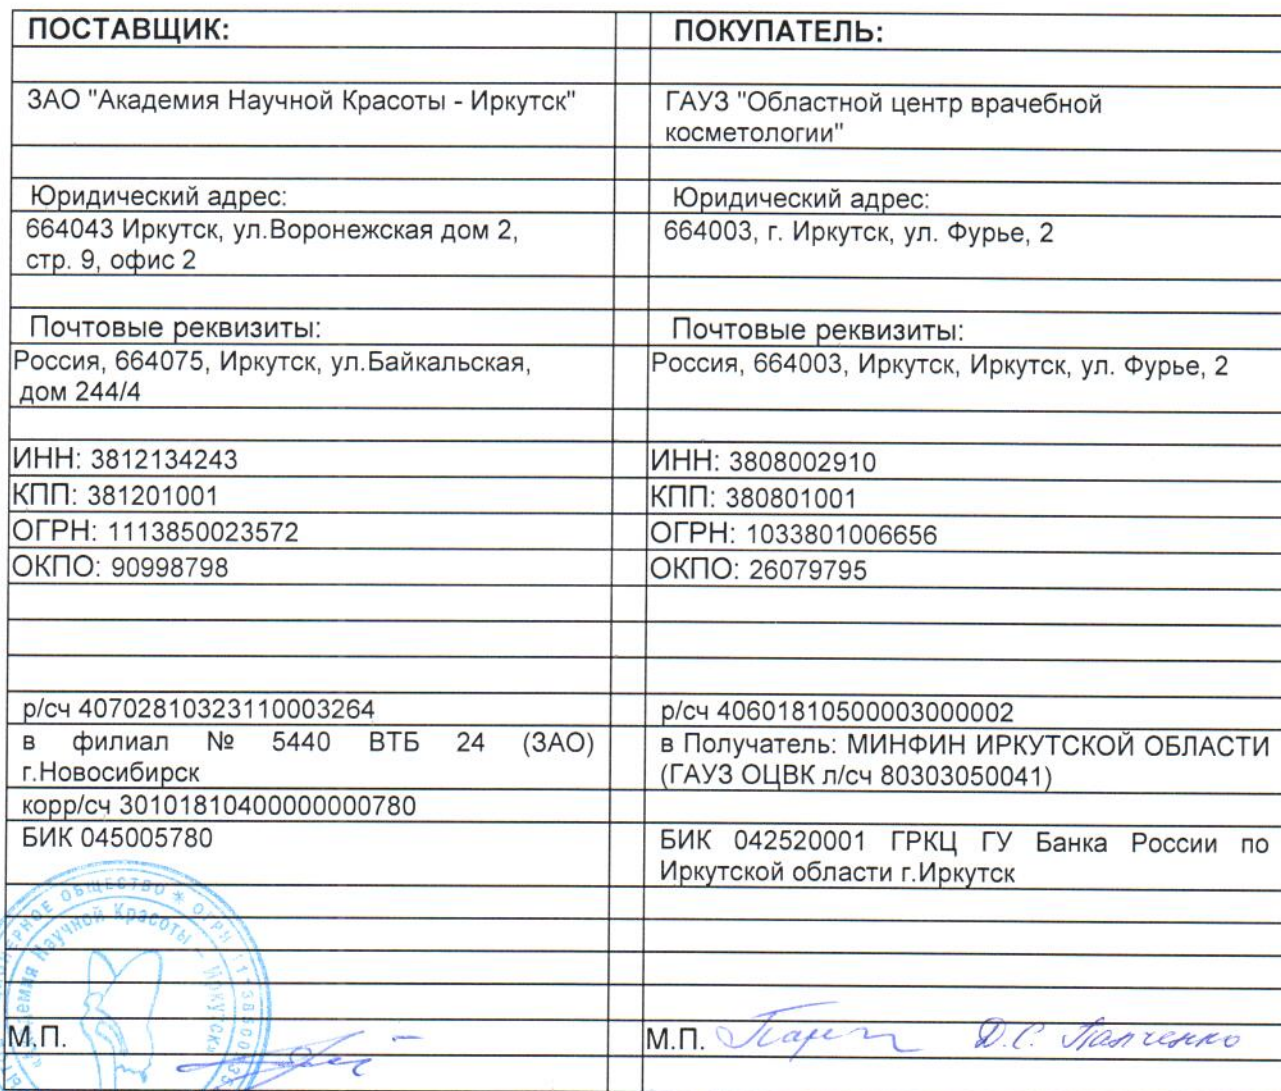 ПОСТАВЩИК:
ЗАО "Академия Научной Красоты - Иркутск"
Юридический адрес:
664043 Иркутск, ул.Воронежская дом 2,
стр. 9, офис 2
Почтовые реквизиты:
Россия, 664075, Иркутск, ул.Байкальская,
дом 244/4
ИНН: 3812134243
КПП: 381201001
ОГРН: 1113850023572
ОКПО: 90998798
р/сч 40702810323110003264
в филиал № 5440 ВТБ 24 (ЗАО)
г.Новосибирск
корр/сч 30101810400000000780
БИК 045005780
М.П.
ПОКУПАТЕЛЬ:
ГАУЗ "Областной центр врачебной
косметологии"
Юридический адрес:
664003, г. Иркутск, ул. Фурье, 2
Почтовые реквизиты:
Россия, 664003, Иркутск, Иркутск, ул. Фурье, 2
ИНН: 3808002910
КПП: 380801001
ОГРН: 1033801006656
ОКПО: 26079795
р/сч 40601810500003000002
в Получатель: МИНФИН ИРКУТСКОЙ ОБЛАСТИ
(ГАУЗ ОЦВК л/сч 80303050041)
БИК 042520001 ГРКЦ ГУ Банка России по
Иркутской области г.Иркутск
М.П. Д.С.
ОБЩЕСТВО * ОГРН
Научной Красоты - Иркутск